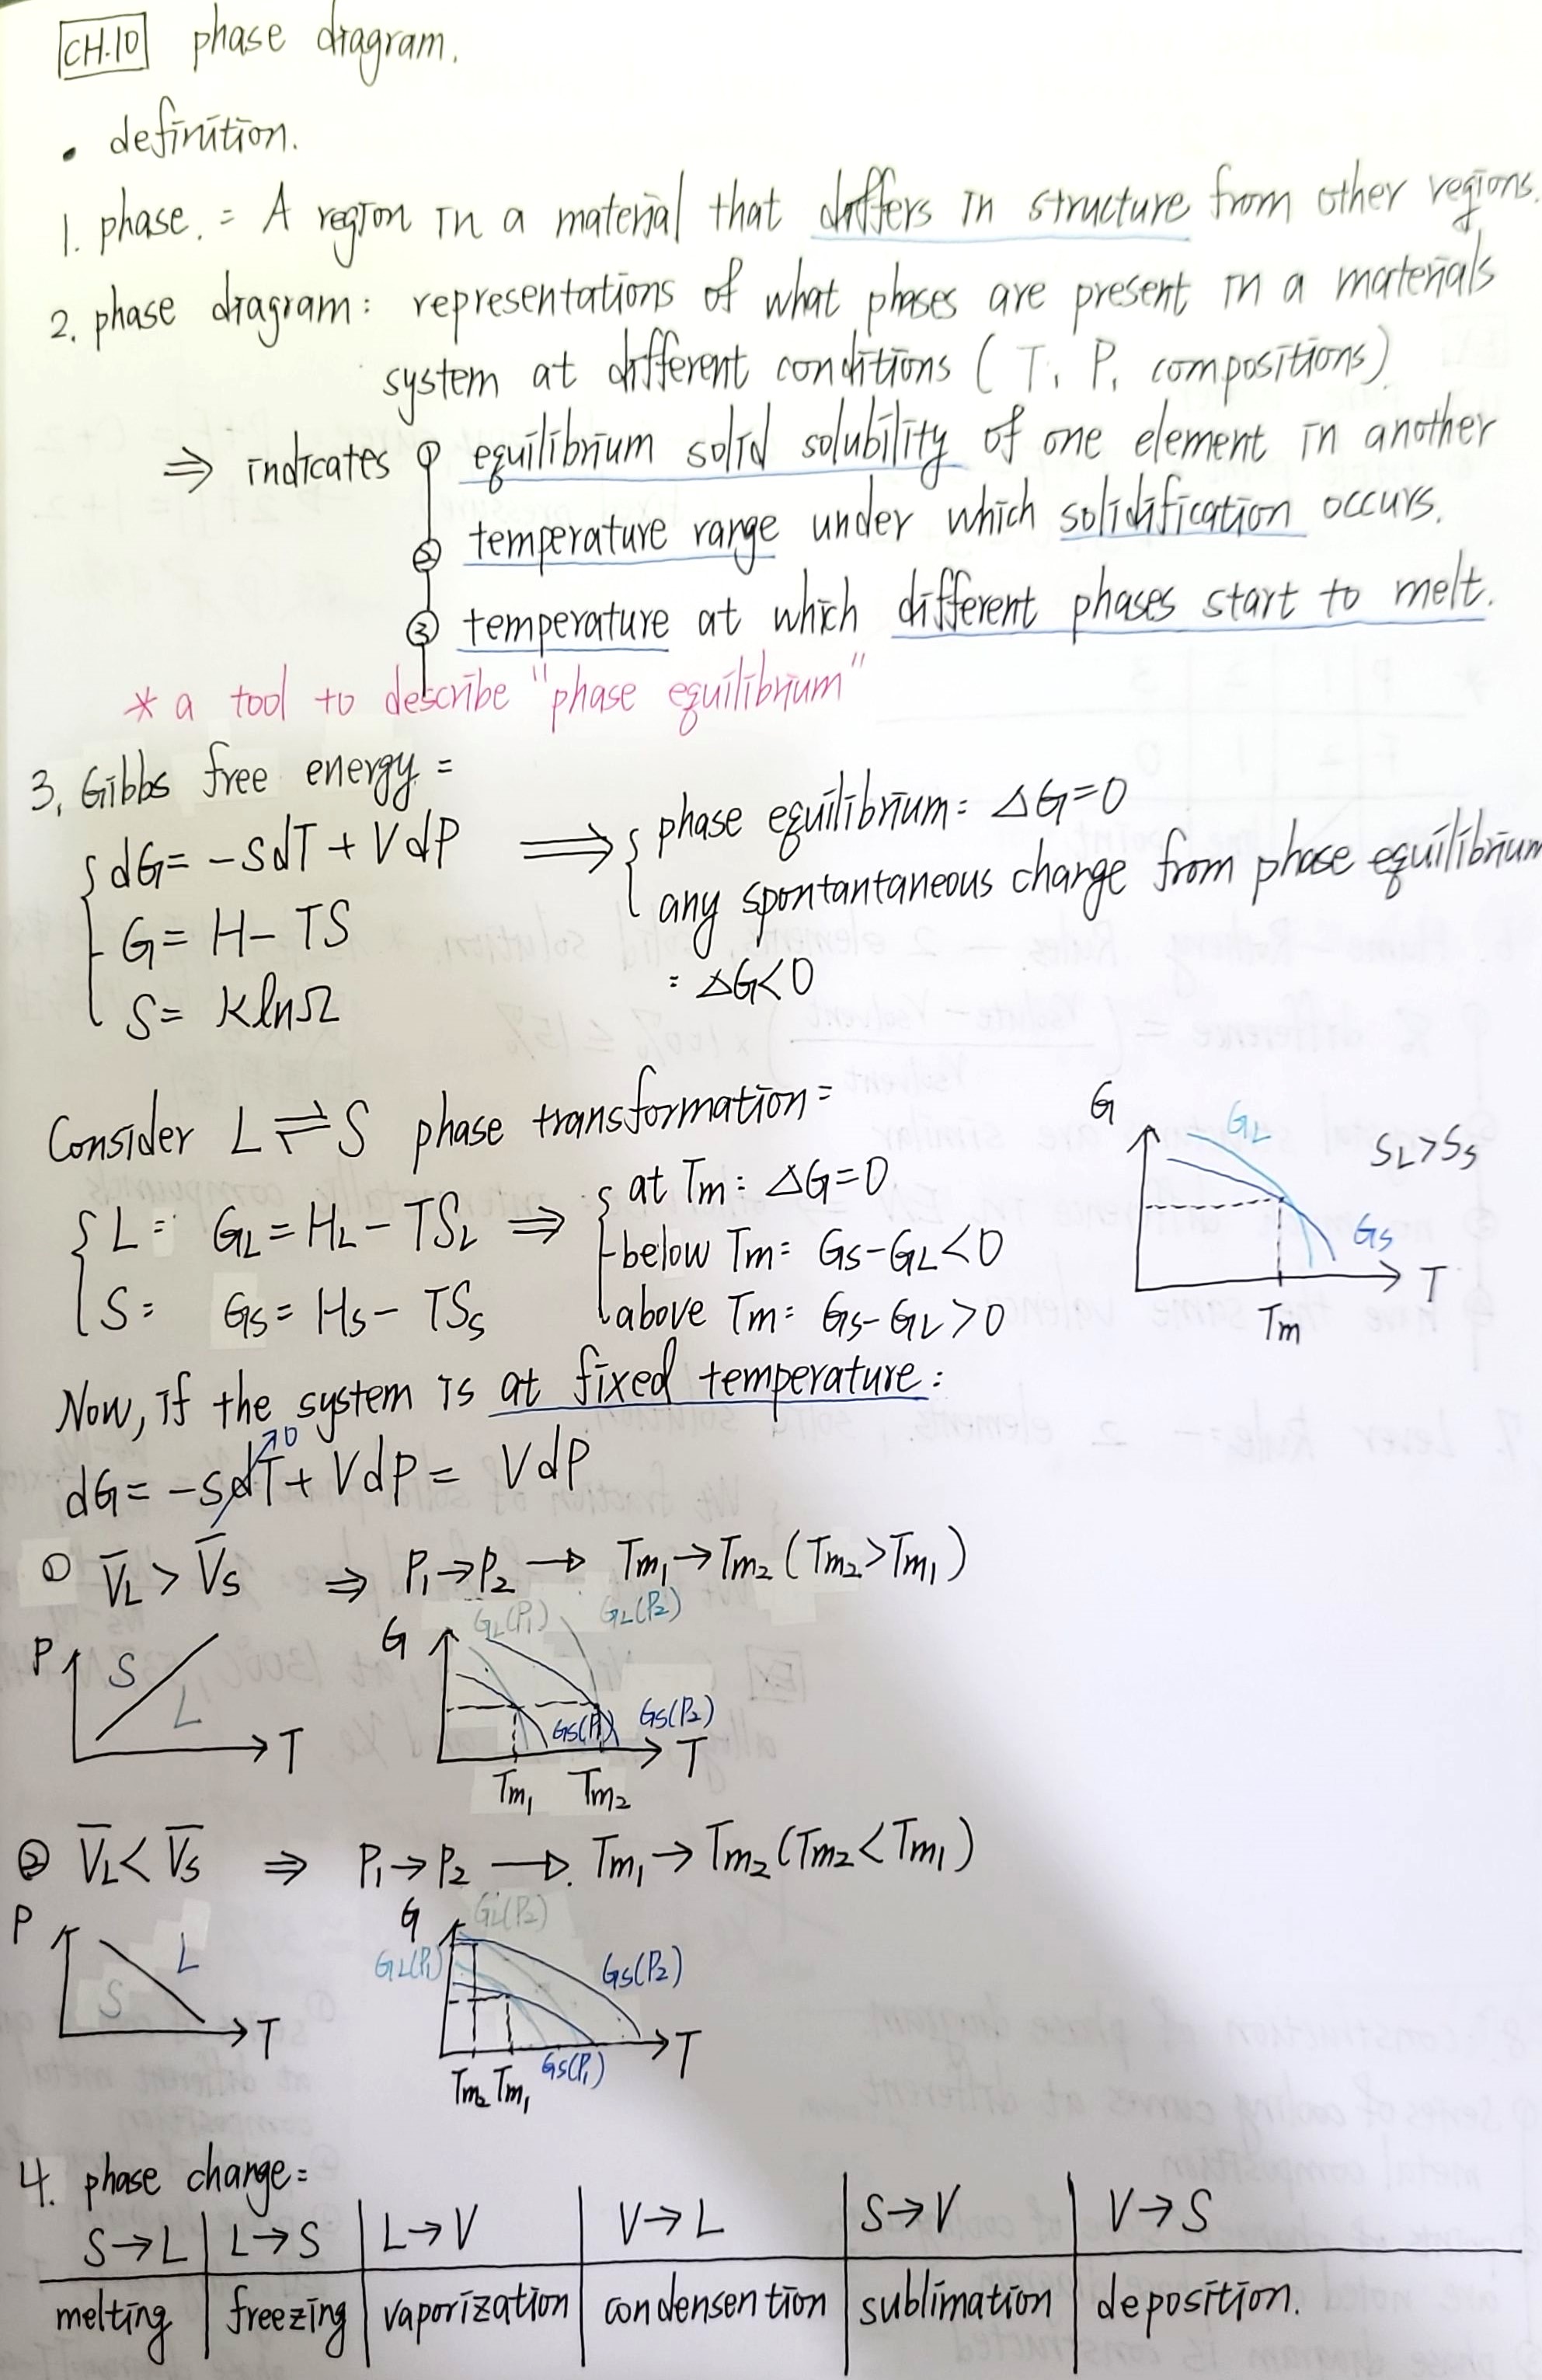 CH.10 phase diagram.
• definition.
1. phase. = A region in a material that differs in structure from other regions.
2. phase diagram: representations of what phases are present in a materials
system at different conditions (T, P, compositions)
⇒ indicates ① equilibrium solid solubility of one element in another
② temperature range under which solidification occurs.
③ temperature at which different phases start to melt.
* a tool to describe "phase equilibrium"
3. Gibbs free energy =
dG = -SdT + VdP ⇒ phase equilibrium = ΔG=0
G = H - TS any spontantaneous change from phase equilibrium
S = klnΩ = ΔG<0
Consider L⇌S phase transformation =
L = GL = HL - TSL ⇒ at Tm = ΔG=0
below Tm = Gs-GL<0
S = Gs = Hs - TSs above Tm = Gs-GL>0
G GL SL>Ss
Gs
T
Tm
Now, if the system is at fixed temperature:
dG = -SdT→0 + VdP = VdP
① V̄L > V̄s ⇒ P1→P2 → Tm1→Tm2 (Tm2>Tm1)
P S L T
G GL(P1) GL(P2)
Gs(P1) Gs(P2) T
Tm1 Tm2
② V̄L < V̄s ⇒ P1→P2 → Tm1→Tm2 (Tm2<Tm1)
P L S T
G GL(P2)
GL(P1) Gs(P2)
Gs(P1) T
Tm2 Tm1
4. phase change =
S→L L→S L→V V→L S→V V→S
melting freezing vaporization condensention sublimation deposition.